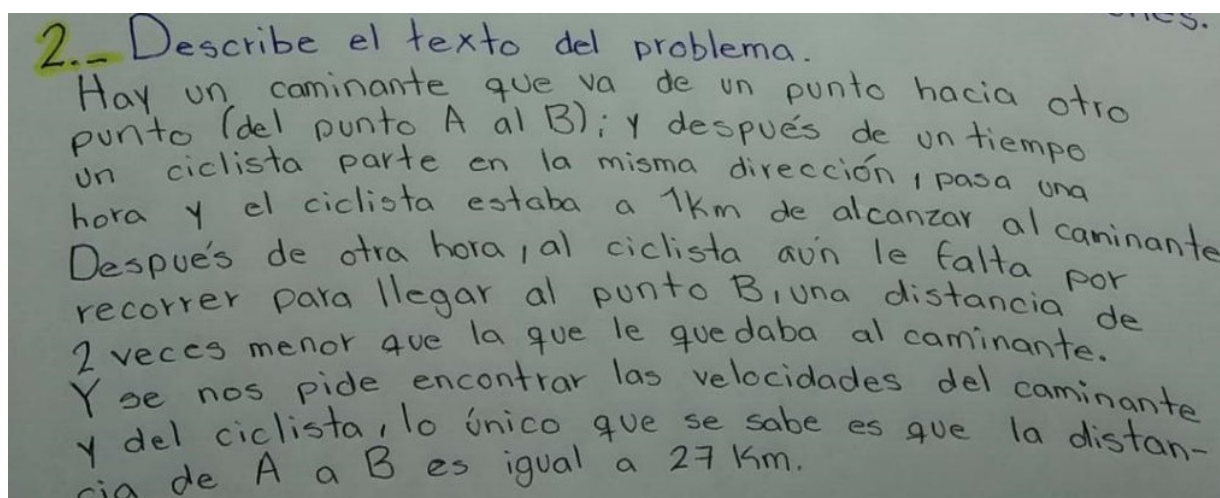 2.- Describe el texto del problema.
Hay un caminante que va de un punto hacia otro
punto (del punto A al B); y después de un tiempo
un ciclista parte en la misma dirección, pasa una
hora y el ciclista estaba a 1km de alcanzar al caminante
Después de otra hora, al ciclista aún le falta por
recorrer para llegar al punto B, una distancia de
2 veces menor que la que le quedaba al caminante.
Y se nos pide encontrar las velocidades del caminante
y del ciclista, lo único que se sabe es que la distan-
cia de A a B es igual a 27 Km.